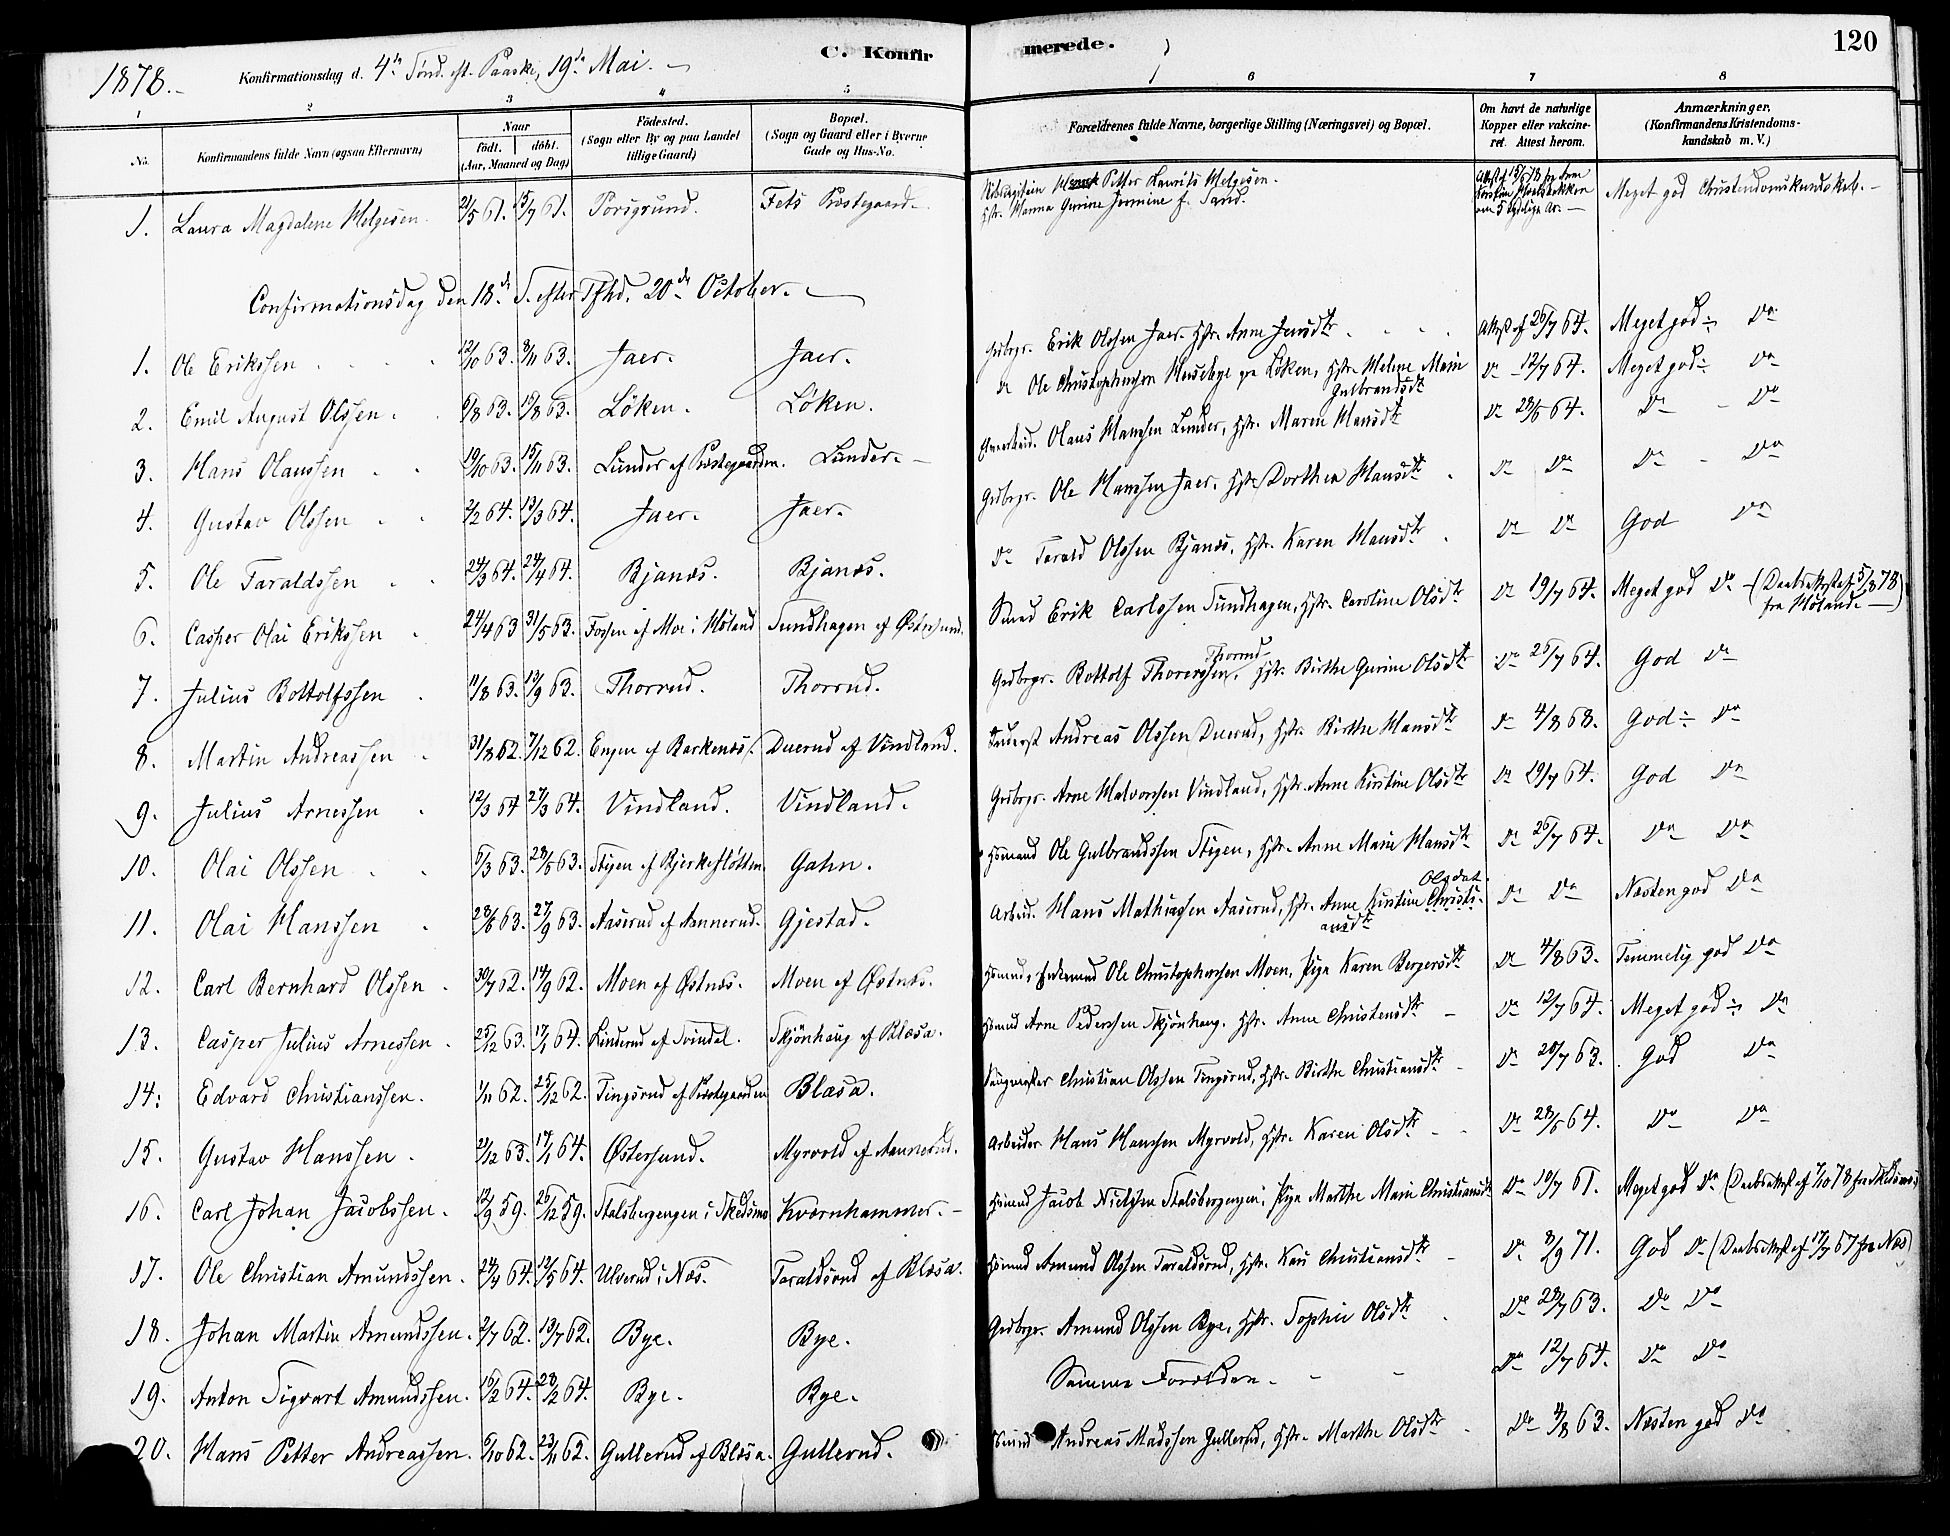 1878.
Konfirmationsdag d. 4de Sönd. eft. Paaske, 19de Mai.
C. Konfirmerede.
120
1 2 3 4 5 6 7 8
No. Konfirmandens fulde Navn (ogsaa Efternavn) Naar födt. döbt. (Aar, Maaned og Dag) Födested. (Sogn eller By og paa Landet tillige Gaard) Bopæl. (Sogn og Gaard eller i Byerne Gade og Hus-No. Forældrenes fulde Navne, borgerlige Stilling (Næringsvei) og Bopæl. Om havt de naturlige Kopper eller vakcineret. Attest herom. Anmærkninger. (Konfirmandens Kristendomskundskab m. V.)
1. Laura Magdalene Helgesen. 21/5 61. 15/7 61. Porsgrund. Fets Præstegaard. Petter Laurits Helgesen. Meget god Christendomskundskab.
Hstr. Hanna Gurine Jermine f. Sand.
Confirmationsdag den 18de S. efter Tfhd. 20de October.
1. Ole Erikssen 12/10 63. 8/11 63. Jaer. Jaer. Grdbrgr. Erik Olssen Jaer. Hstr. Anne Jensdtr. Attest af 26/7 64. Meget god ÷ Do
2. Emil August Olssen. 6/8 63. 19/8 63. Löken. Löken. Do Ole Christophersen Husebye pr Löken, Hstr. Helene Marie Gulbrandsdtr Do 12/7 64. Meget god ÷ Do
3. Hans Olaussen 19/10 63. 15/11 63. Lunder af Præstegaarden. Lunder. Olaus Hanssen Lunder, Hstr. Maren Hansdtr Do 28/5 64. Do - Do
4. Gustav Olssen 2/2 64. 13/3 64. Jaer. Jaer. Grdbrgr. Ole Hanssen Jaer. Hstr. Dorthea Hansdtr. Do Do Do - Do
5. Ole Taraldssen 24/3 64. 24/4 64. Bjanæs. Bjanæs. Do Tarald Olssen Bjanæs, Hstr. Karen Hansdtr. Do Do God Do
6. Casper Olai Erikssen 24/4 63 31/5 63. Fossen af Moe i Höland Sundhagen af Østersund. Smed Erik Carlssen Sundhagen, Hstr. Caroline Olsdtr Do 19/7 64. Meget god Do - (Daabsattest af 5/8 78 fra Höland.)
7. Julius Bottolfssen 11/8 63. 13/9 63. Thorrud. Thorrud. Grdbrgr. Bottolf Thorerssen Thorrud, Hstr. Birthe Gurine Olsdtr Do 26/7 64. God Do
8. Martin Andreassen 31/8 62. 7/12 62. Engen af Barkenæs. Duerud af Vindland. Andreas Olssen Duerud, Hstr. Birthe Hansdtr Do 4/8 68. God ÷ Do
9. Julius Arnessen 12/3 64 27/3 64. Vindland. Vindland. Grdbrgr. Arne Halvorssen Vindland, Hstr. Anne Kirstine Olsdtr Do 19/7 64. God Do
10. Olai Olssen 5/3 63. 28/5 63. Stigen af Bjerkeflötten. Gahn. Hsmand Ole Gulbrandssen Stigen, Hstr. Anne Marie Hansdtr Do 26/7 64. Do Do
11. Olai Hanssen 28/6 63. 27/9 63. Aaserud af Aannerud. Gjestad. Arbeid. Hans Mathiassen Aaserud, Hstr. Anne Kirstine Christiansdtr Olsdat. Do Do Næsten god Do
12. Carl Bernhard Olssen. 30/7 62. 14/9 62. Moen af Østnæs. Moen af Østnæs. Hsmand, Enkemand Ole Christopherssen Moen, Pige Karen Bergersdtr Do 4/8 63. Temmelig god Do
13. Casper Julius Arnessen. 25/12 63. 17/1 64. Linderud af Svindal. Skjönhaug af Blæsa. Hsmand Arne Pederssen Skjönhaug. Hstr. Anne Christensdtr Do 12/7 64. Meget god ÷ Do
14. Edvard Christianssen. 1/11 62. 25/12 62. Tingsrud af Præstegaarden Blæsa. Christian Olssen Tingsrud, Hstr. Birthe Christiansdtr Do 20/7 63. God Do
15. Gustav Hanssen. 21/12 63. 17/1 64. Østersund. Myrvold af Aannerud. Arbeider Hans Hanssen Myrvold, Hstr. Karen Olsdtr Do 28/5 64. Do Do
16. Carl Johan Jacobssen. 12/9 59. 26/12 59. Stalsbergengen i Skedsmo Kværnhammer. Hsmand Jacob Nielssen Stalsbergengen, Pige Marthe Marie Christiansdtr Do 10/7 61. Meget god Do (Daabsattest af 7/10 78 fra Skedsmo.)
17. Ole Christian Amundssen. 24/4 64. 12/5 64. Ulverud i Næs. Taraldsrud af Blæsa. Hsmand Amund Olssen Taraldsrud, Hstr. Kari Christiansdtr Do 8/9 71. God Do (Daabsattest af 17/7 67 fra Næs)
18. Johan Martin Amundssen. 2/7 62. 13/7 62. Bye. Bye. Grdbrgr. Amund Olssen Bye, Hstr. Sophie Olsdtr Do 29/7 63. Do Do
19. Anton Sigvart Amundssen. 16/2 64. 28/2 64. Bye. Bye. Samme Forældre. Do 12/7 64. Do Do
20. Hans Petter Andreassen. 5/10 62. 23/11 62. Gullerud af Blæsa. Gullerud. Hsmand Andreas Madssen Gullerud, Hstr. Marthe Olsdtr Do 4/8 63. Næsten god Do